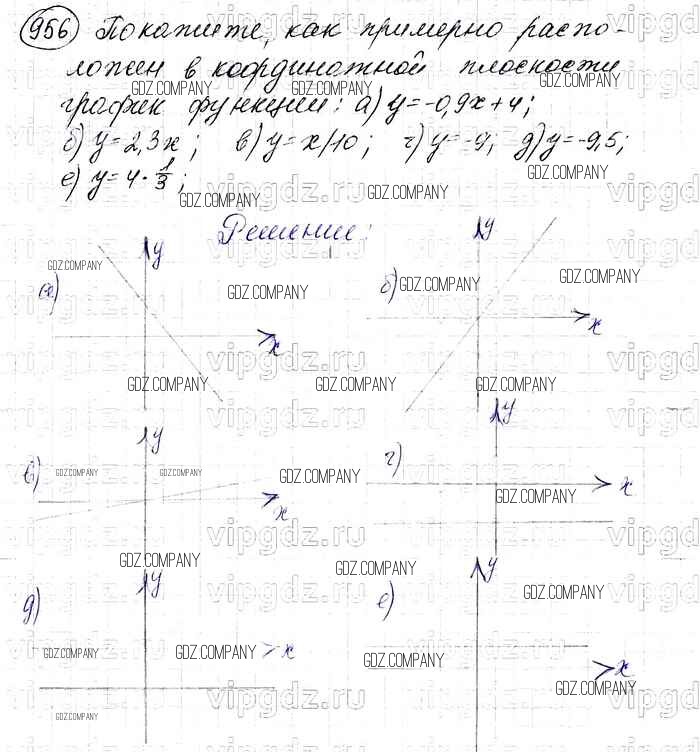 956 Покажите, как примерно распо-
ложен в координатной плоскости
график функции: а) y=-0,9x+4;
б) y=2,3x; в) y=x/10; г) y=-9; д) y=-9,5;
е) y=4·1/3;
Решение:
а) y x
б) y x
в) y x
г) y x
д) y x
е) y x
GDZ.COMPANY
vipgdz.ru